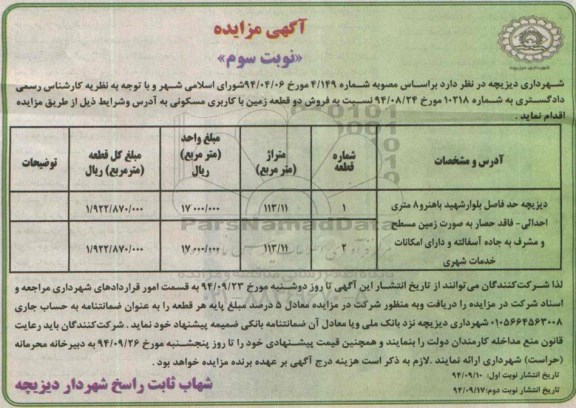 آگهی مزایده
«نوبت سوم»
شهرداری دیزیچه در نظر دارد براساس مصوبه شماره ۴/۱۴۹ مورخ ۹۴/۰۴/۰۶شورای اسلامی شهر و با توجه به نظریه کارشناس رسمی
دادگستری به شماره ۱۰۲۱۸ مورخ ۹۴/۰۸/۲۴ نسبت به فروش دو قطعه زمین با کاربری مسکونی به آدرس وشرایط ذیل از طریق مزایده
اقدام نماید .
آدرس و مشخصات
شماره قطعه
متراژ (متر مربع)
مبلغ واحد (متر مربع) ریال
مبلغ کل قطعه (مترمربع) ریال
توضیحات
دیزیچه حد فاصل بلوارشهید باهنرو۸ متری
احداثی- فاقد حصار به صورت زمین مسطح
و مشرف به جاده آسفالته و دارای امکانات
خدمات شهری
۱ ۱۱۳/۱۱ ۱۷۰۰۰/۰۰۰ ۱/۹۲۲/۸۷۰/۰۰۰
۲ ۱۱۳/۱۱ ۱۷۰۰۰/۰۰۰ ۱/۹۲۲/۸۷۰/۰۰۰
ParsNamadData
لذا شرکت‌کنندگان می‌توانند از تاریخ انتشار این آگهی تا روز دوشنبه مورخ ۹۴/۰۹/۲۳ به قسمت امور قراردادهای شهرداری مراجعه و
اسناد شرکت در مزایده را دریافت وبه منظور شرکت در مزایده معادل ۵ درصد مبلغ پایه هر قطعه را به عنوان ضمانتنامه به حساب جاری
۰۱۰۵۶۶۴۵۶۳۰۰۸ شهرداری دیزیچه نزد بانک ملی ویا معادل آن ضمانتنامه بانکی ضمیمه پیشنهاد خود نماید . شرکت‌کنندگان باید رعایت
قانون منع مداخله کارمندان دولت را بنمایند و همچنین قیمت پیشنهادی خود را تا روز پنجشنبه مورخ ۹۴/۰۹/۲۶ به دبیرخانه محرمانه
(حراست) شهرداری ارائه نمایند .لازم به ذکر است هزینه درج آگهی بر عهده برنده مزایده خواهد بود .
تاریخ انتشار نوبت اول: ۹۴/۰۹/۱۰
تاریخ انتشار نوبت دوم:۹۴/۰۹/۱۷
شهاب ثابت راسخ شهردار دیزیچه